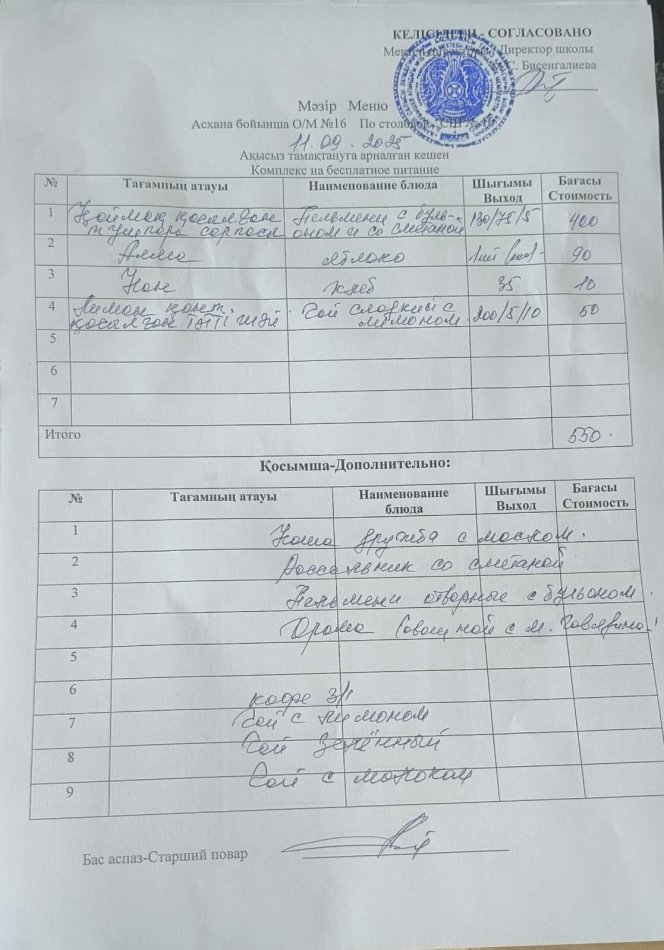 КЕЛІСІЛДІ - СОГЛАСОВАНО
Директор школы
С. Бисенгалиева
Мәзір Меню
Асхана бойынша О/М №16 По столовой
11.09.2025
Ақысыз тамақтануга арналған кешен
Комплекс на бесплатное питание
№ Тағамның атауы Наименование блюда Шығымы Выход Бағасы Стоимость
1 Қаймақ қосылған тұшпара сорпасы Пельмени с бульоном и со сметаной 130/75/5 400
2 Алма яблоко 1шт 90
3 Нан хлеб 35 10
4 Лимон қант қосылған тәтті шәй Чай сладкий с лимоном 200/5/10 50
5
6
7
Итого 550
Қосымша-Дополнительно:
№ Тағамның атауы Наименование блюда Шығымы Выход Бағасы Стоимость
1 Каша дружба с маслом.
2 Рассольник со сметаной
3 Пельмени отварные с бульоном.
4 с м.
5
6 кофе 3/1
7 Чай с лимоном
8 Чай зелённый
9 Чай с молоком
Бас аспаз-Старший повар